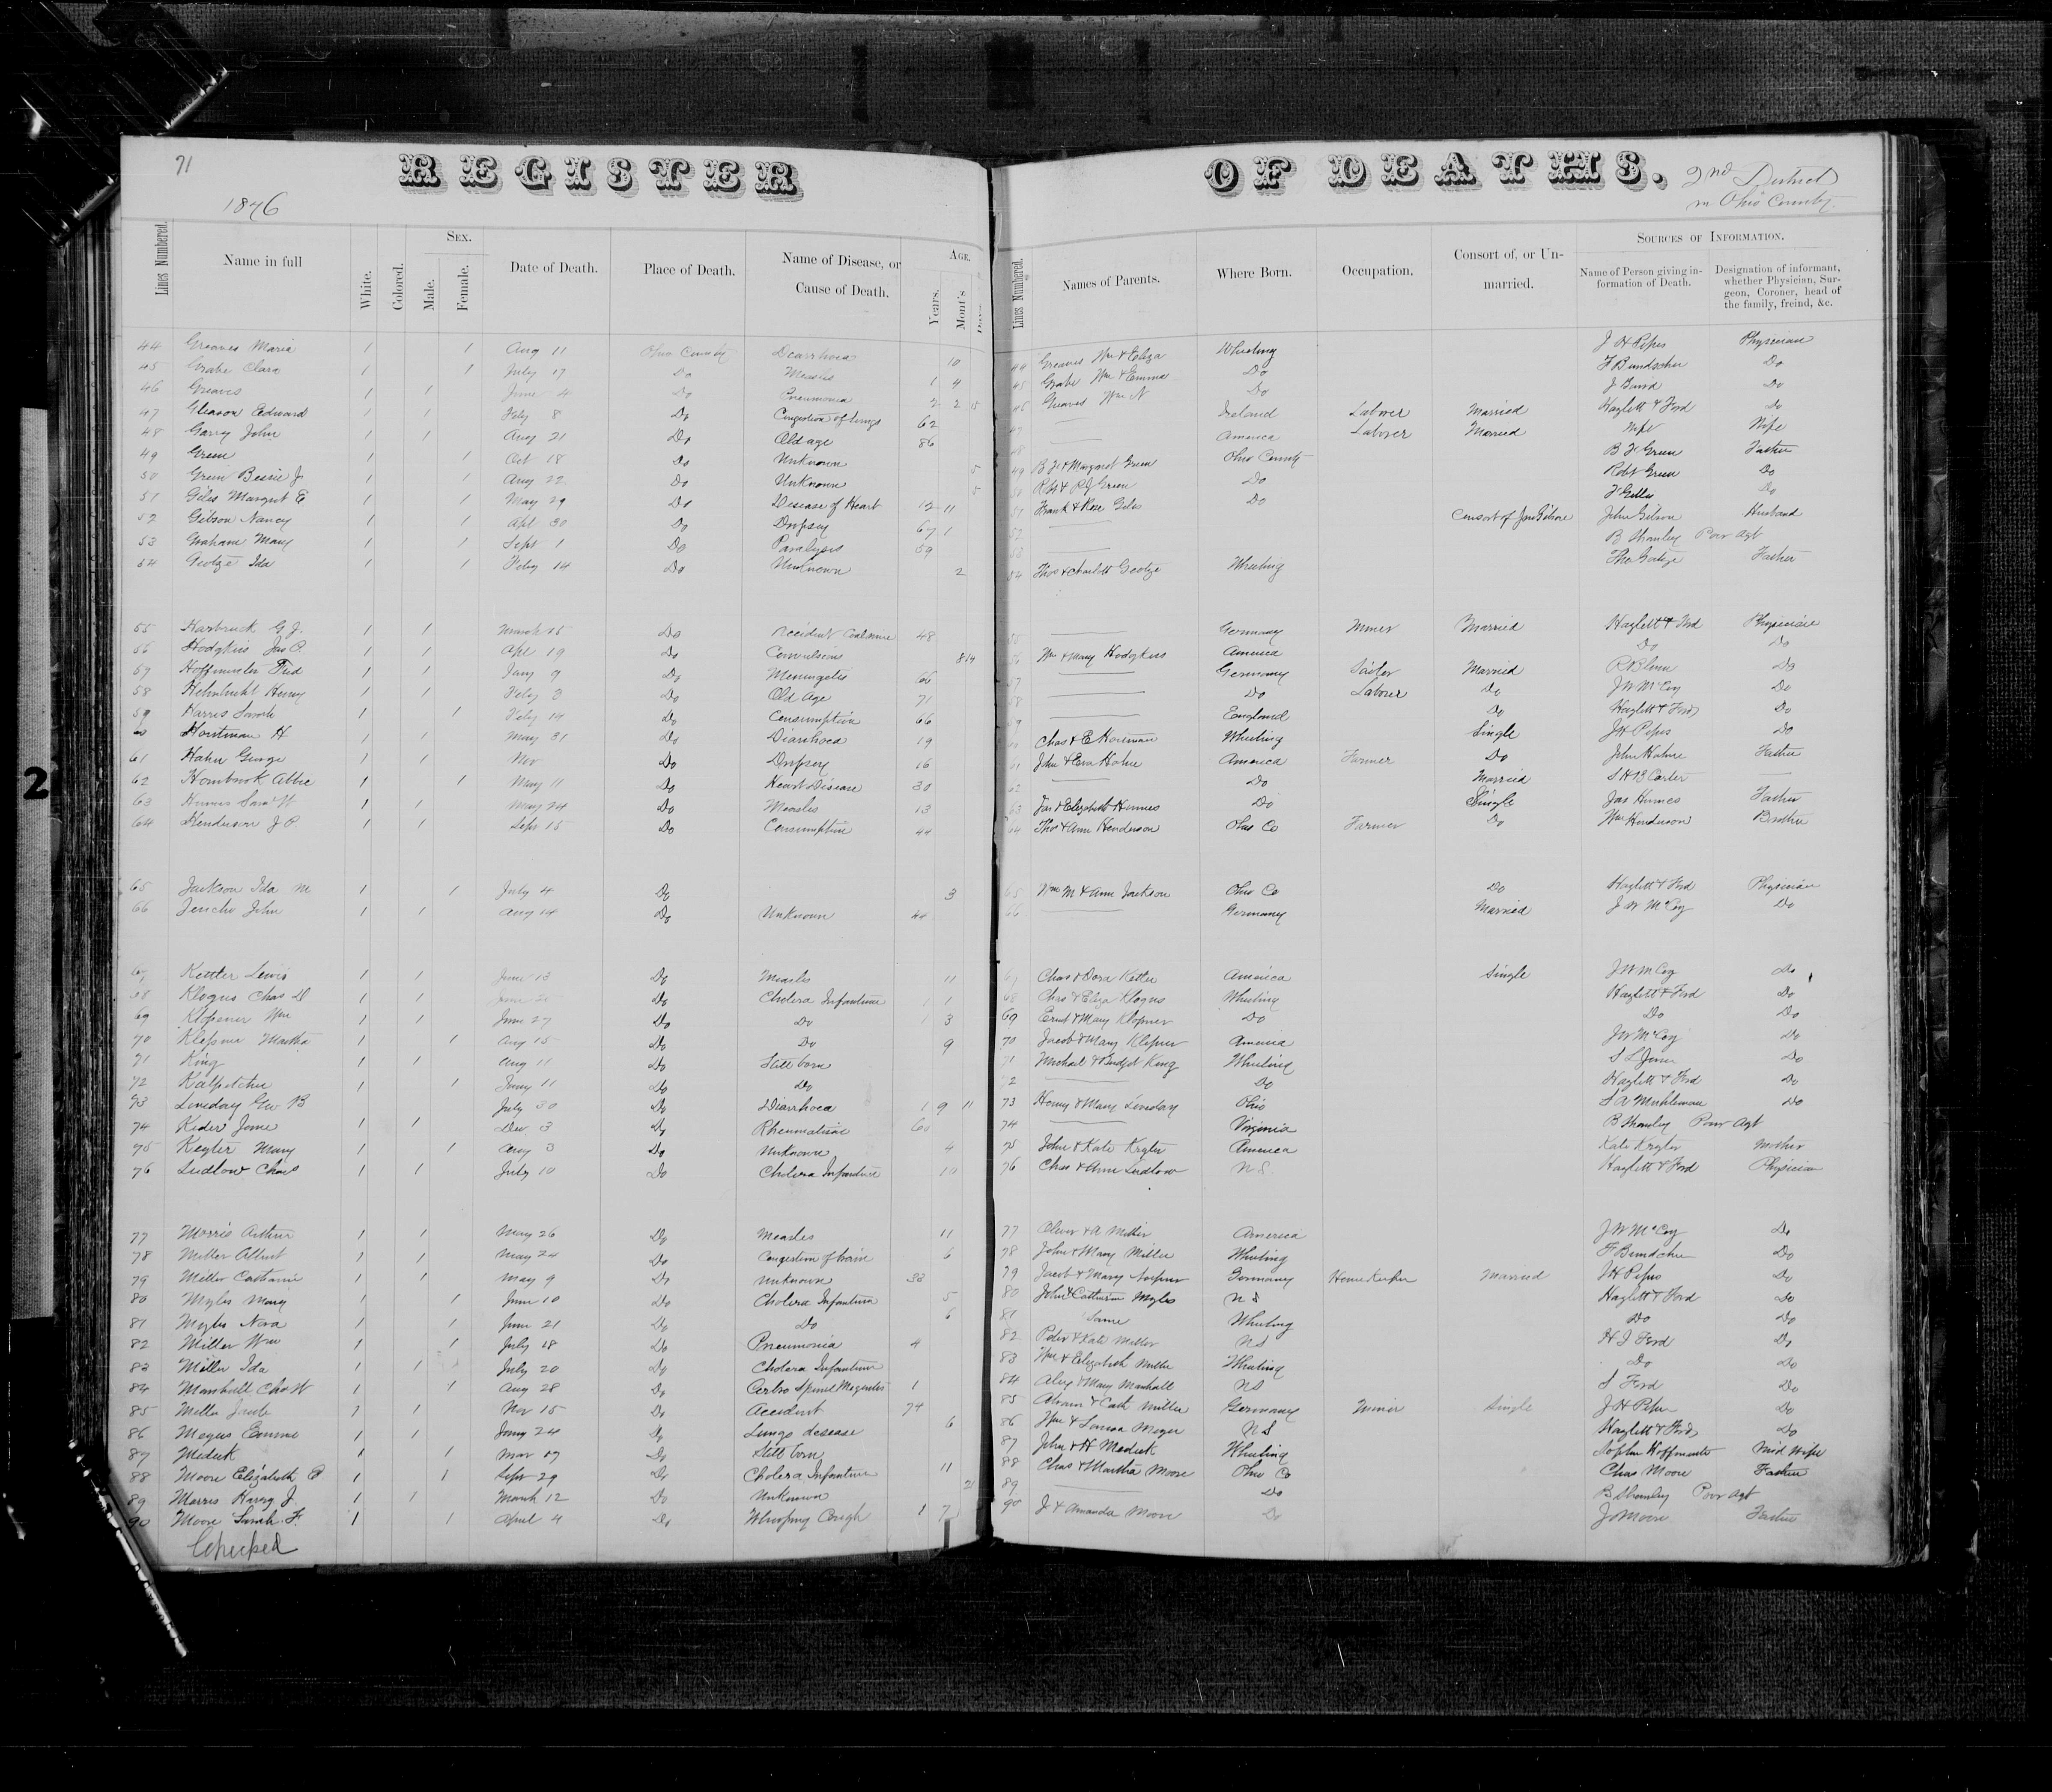 71
REGISTER OF DEATHS.
2nd District
in Ohio County.
1876
Lines Numbered. Name in full White. Colored. Sex. Male. Female. Date of Death. Place of Death. Name of Disease, or Cause of Death. Age. Years. Mont's Lines Numbered. Names of Parents. Where Born. Occupation. Consort of, or Unmarried. Sources of Information. Name of Person giving information of Death. Designation of informant, whether Physician, Surgeon, Coroner, head of the family, freind, &c.
44 Greaves Maria 1 1 Aug 11 Ohio County Diarrhoea 10 44 Greaves Wm & Eliza Wheeling J H Pipes Physician
45 Grabe Clara 1 1 July 17 Do Measles 1 4 45 Grabe Wm & Emma Do F Bundschu Do
46 Greaves 1 1 June 4 Do Pneumonia 2 2 5 46 Greaves Wm N Do J Baird Do
47 Gleason Edward 1 1 Feby 8 Do Congestion of lungs 62 47 Ireland Laborer Married Hazlett & Ford Do
48 Garry John 1 1 Aug 21 Do Old age 86 48 America Laborer Married Wife Wife
49 Green 1 1 Oct 18 Do Unknown 5 49 B F & Margaret Green Ohio County B F Green Father
50 Green Bessie J 1 1 Aug 22 Do Unknown 5 50 Green Do Robt Green Do
51 Giles Margret E 1 1 May 29 Do Disease of Heart 12 11 51 Frank & Rose Giles Do F Gilles Do
52 Gibson Nancy 1 1 Apl 30 Do Dropsy 67 1 52 Consort of Jno Gibson John Gibson Husband
53 Graham Mary 1 1 Sept 1 Do Paralysis 59 53 B Shanley Poor Agt
54 Geotze Ida 1 1 Feby 14 Do Unknown 2 54 Thos & Charlott Geotze Wheeling Father
55 Harbruck G J. 1 1 March 25 Do Accident Coal mine 48 55 Germany Miner Married Hazlett & Ford Physician
56 Hodgkins Jas O. 1 1 Apl 19 Do Convulsions 8 14 56 Wm & Mary Hodgkins America Do Do
57 Hoffmister Fred 1 1 Jany 9 Do Meningetis 66 57 Germany Tailor Married Do
58 Henry 1 1 Feby 3 Do Old Age 71 58 Do Laborer Do J W McCoy Do
59 Harris Sarah 1 1 Feby 14 Do Consumption 66 59 England Do Hazlett & Ford Do
60 Horstman H 1 1 May 31 Do Diarrhoea 19 60 Chas & E Horstman Wheeling Single J H Pipes Do
61 Hahn George 1 1 Nov Do Dropsy 16 61 John & Eva Hahn America Farmer Do John Hahne Father
62 Hornbrook Abbie 1 1 May 11 Do Heart Disease 30 62 Do Married S H B Carter
63 Humes Saml W 1 1 May 24 Do Measles 13 63 Jas & Elizabeth Humes Do Single Jas Humes Father
64 Henderson J P 1 1 Sept 15 Do Consumption 44 64 Thos & Ann Henderson Ohio Co Farmer Do Wm Henderson Brother
65 Jackson Ida M 1 1 July 4 Do 3 65 Wm M & Ann Jackson Ohio Co Do Hazlett & Ford Physician
66 Jericho John 1 1 Aug 14 Do Unknown 44 66 Germany Married J W McCoy Do
67 Ketter Lewis 1 1 June 13 Do Measles 11 67 Chas & Dora Ketter America Single J W McCoy Do
68 Klogus Chas D 1 1 June Do Cholera Infantum 1 1 68 Chas & Eliza Klogus Wheeling Hazlett & Ford Do
69 Klopener Wm 1 1 June 27 Do Do 1 3 69 Ernst & Mary Klopner Do Do Do
70 Martha 1 1 Aug 15 Do Do 9 70 Jacob & Mary America J W McCoy Do
71 King 1 1 Aug 11 Do Still born 71 Michael & Bridget King Wheeling S L Jones Do
72 1 1 Jany 11 Do Do 72 Do Hazlett & Ford Do
73 Linsday Geo B July 30 Do Diarrhoea 1 9 11 73 Henry & Mary Linsday Ohio S A Muhleman Do
74 Keder Jane 1 1 Dec 3 Do Rheumatism 60 74 Virginia B Shanley Poor Agt
75 Kegler Mary 1 1 Aug 3 Do Unknown 4 75 John & Kate Kegler America Kate Kegler Mother
76 Ludlow Chas 1 1 July 10 Do Cholera Infantum 10 76 Chas & Ann Ludlow N S. Hazlett & Ford Physician
77 Morris Arthur 1 1 May 26 Do Measles 11 77 Oliver & A America J W McCoy Do
78 Miller Albert 1 1 May 24 Do Congestion of brain 6 78 John & Mary Miller Wheeling F Bundschu Do
79 Miller Catharine 1 1 May 9 Do Unknown 33 79 Jacob & Mary Germany House Keeper Married J H Pipes Do
80 Myles Mary 1 1 June 10 Do Cholera Infantum 5 80 John & Catharine Myles N S Hazlett & Ford Do
81 Myles Nora 1 1 June 21 Do Do 6 81 Same Wheeling Do Do
82 Miller Wm 1 1 July 18 Do Pneumonia 4 82 Peter & Kate Miller N S H J Ford Do
83 Miller Ida 1 1 July 20 Do Cholera Infantum 83 Wm & Elizabeth Miller Wheeling Do Do
84 Marshall Chas W 1 1 Aug 28 Do Cerbro Spinal 1 84 Alex & Mary Marshall N S S Ford Do
85 Miller Jacob 1 1 Nov 15 Do Accident 74 85 Abram & Cath Miller Germany Miner Single J H Pipes Do
86 Megus Emma 1 1 Jany 24 Do Lungs desease 6 86 Wm & Louisa Meger N S Hazlett & Ford Do
87 Medick 1 1 Mar 17 Do Still born 87 John & H Medick Wheeling Sophia Hoffmeister Mid Wife
88 Moore Elizabeth P 1 1 Sept 29 Do Cholera Infantum 11 88 Chas & Martha Moore Ohio Co Chas Moore Father
89 Morris Harry J. 1 1 March 12 Do Unknown 21 89 Do B Shanley Poor Agt
90 Moore Sarah F. 1 1 April 4 Do Whooping Cough 1 7 90 J & Amanda Moore Do Jo Moore Father
Copied
2